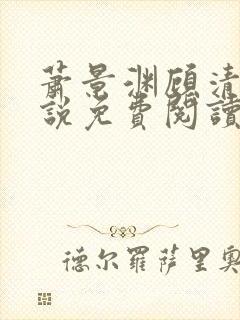 萧景渊顾清
説免費閱讀
德尔羅萨里奥